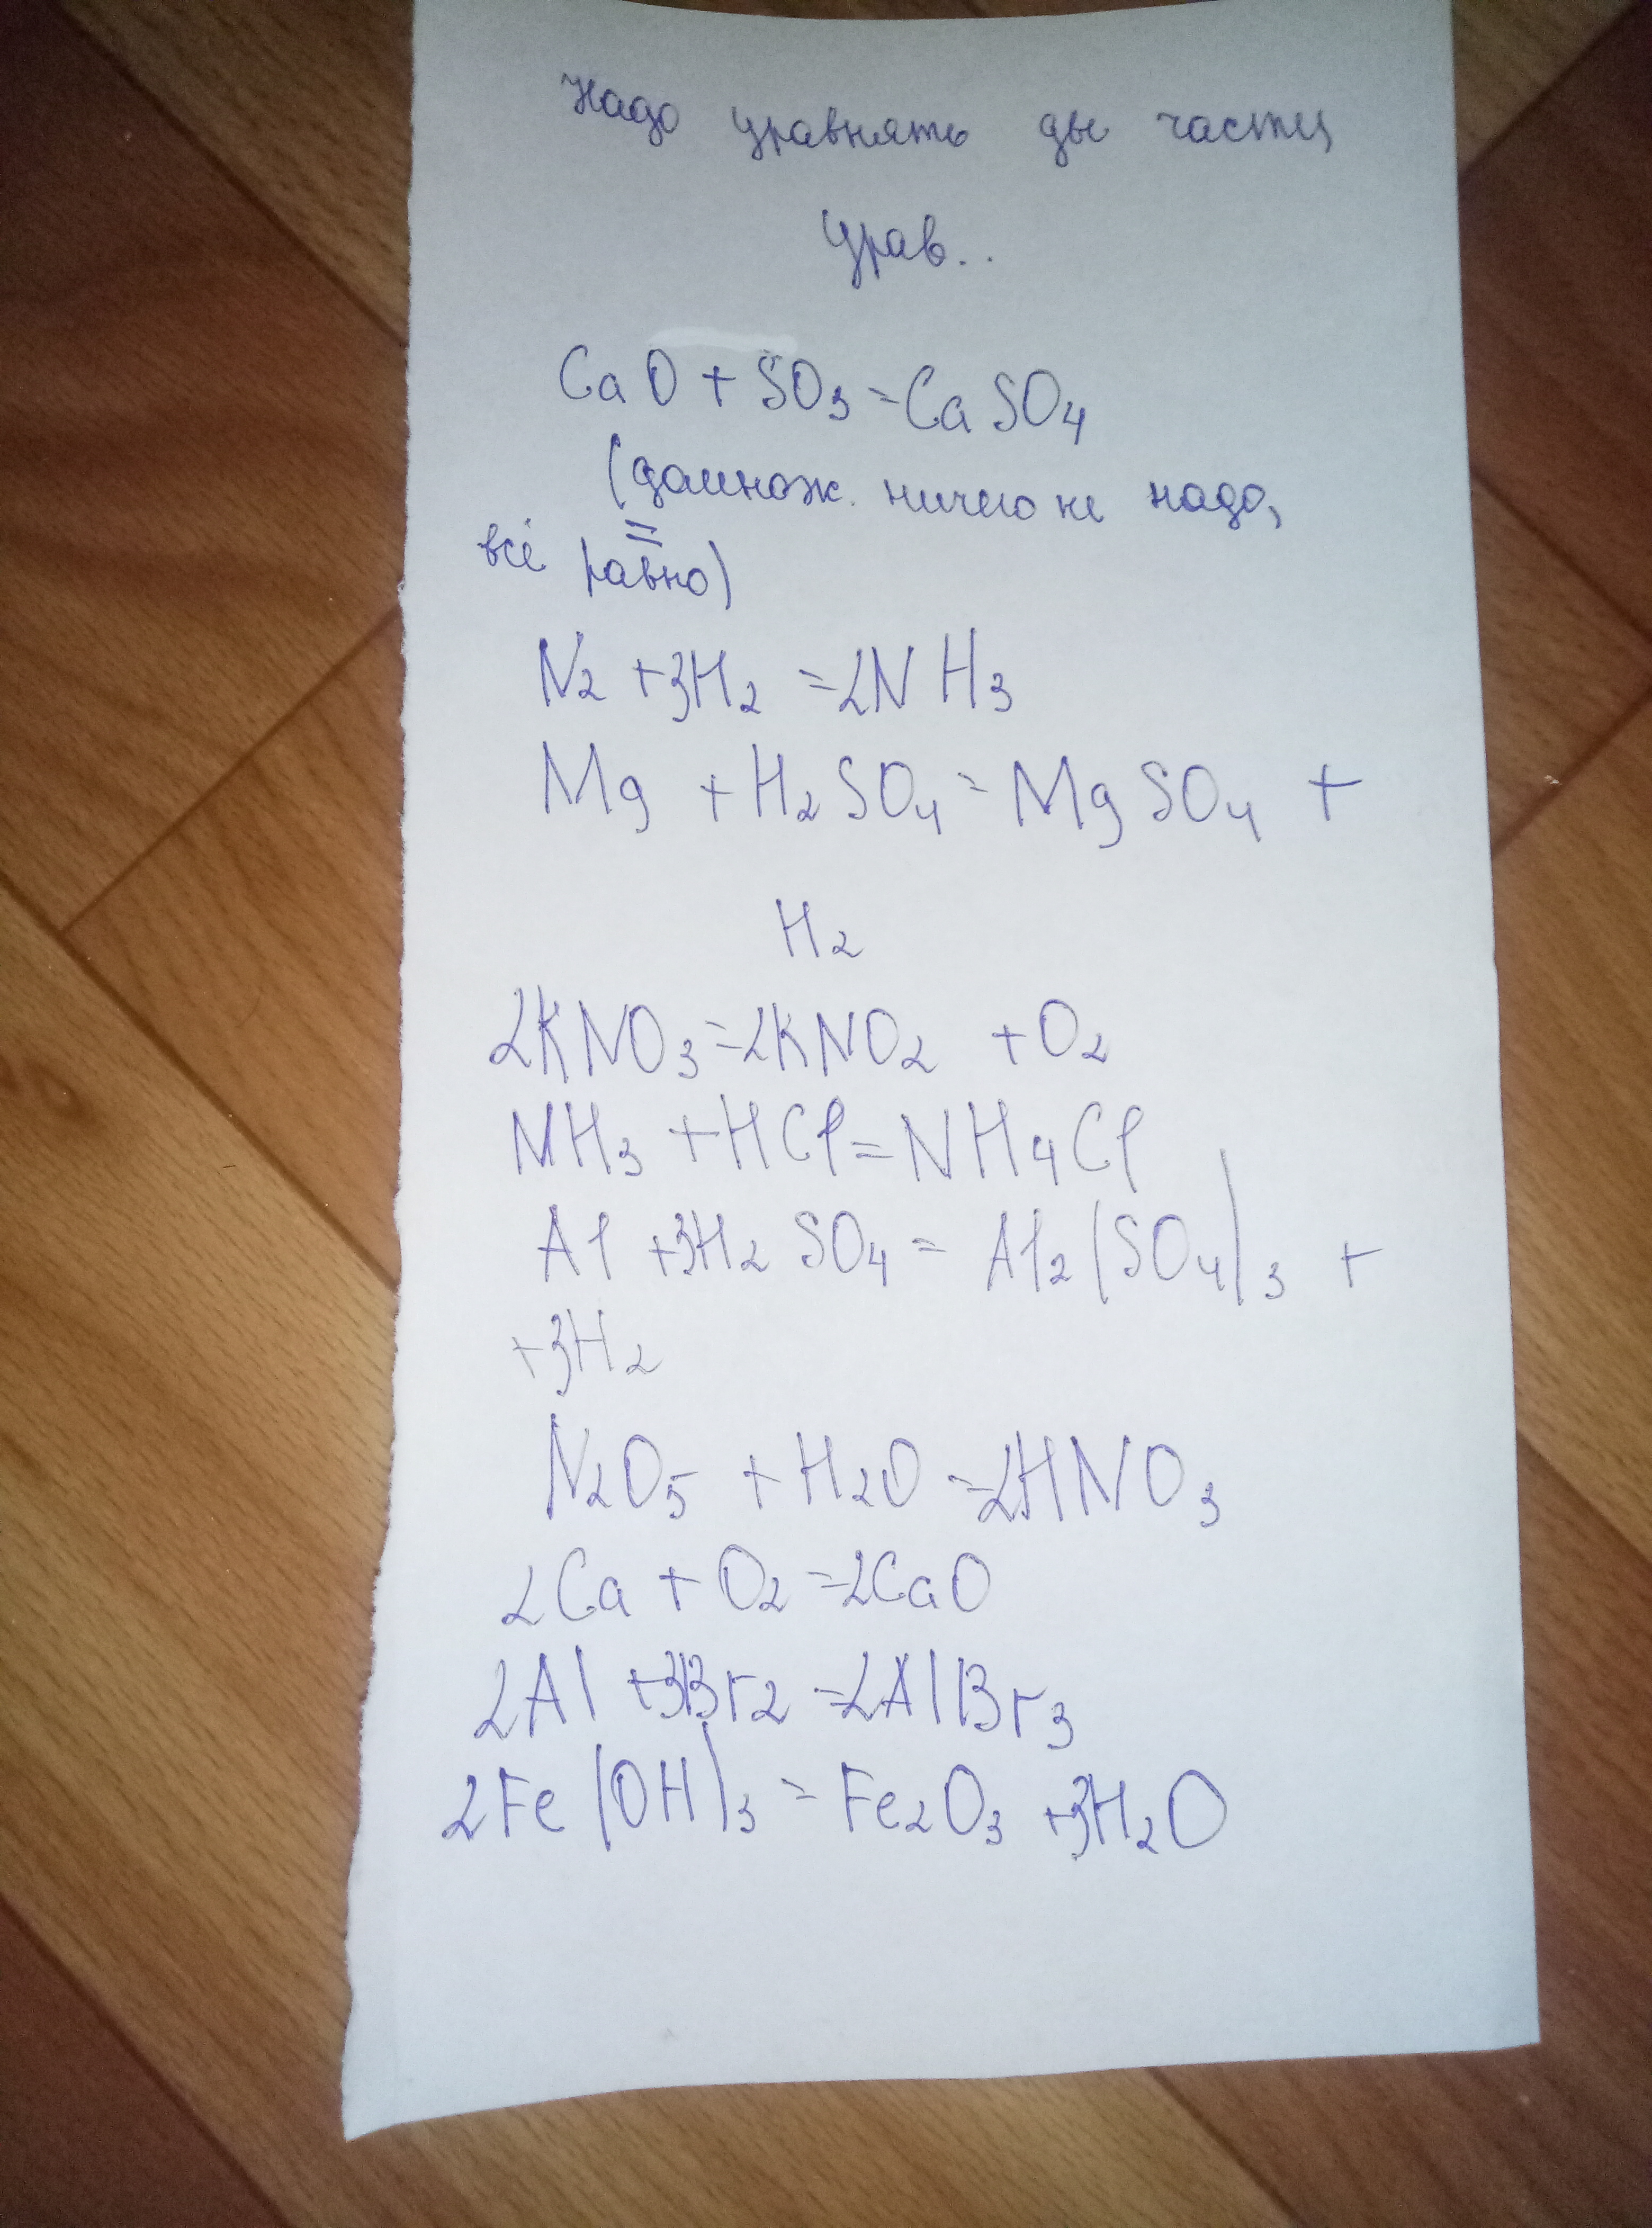 Надо уравнять две части
Урав..
CaO + SO3 = CaSO4
(домнож. ничего не надо,
всё равно)
N2 + 3H2 = 2NH3
Mg + H2SO4 = MgSO4 +
H2
2KNO3 = 2KNO2 + O2
NH3 + HCl = NH4Cl
Al + 3H2SO4 = Al2(SO4)3 +
+ 3H2
N2O5 + H2O = 2HNO3
2Ca + O2 = 2CaO
2Al + 3Br2 = 2AlBr3
2Fe(OH)3 = Fe2O3 + 3H2O